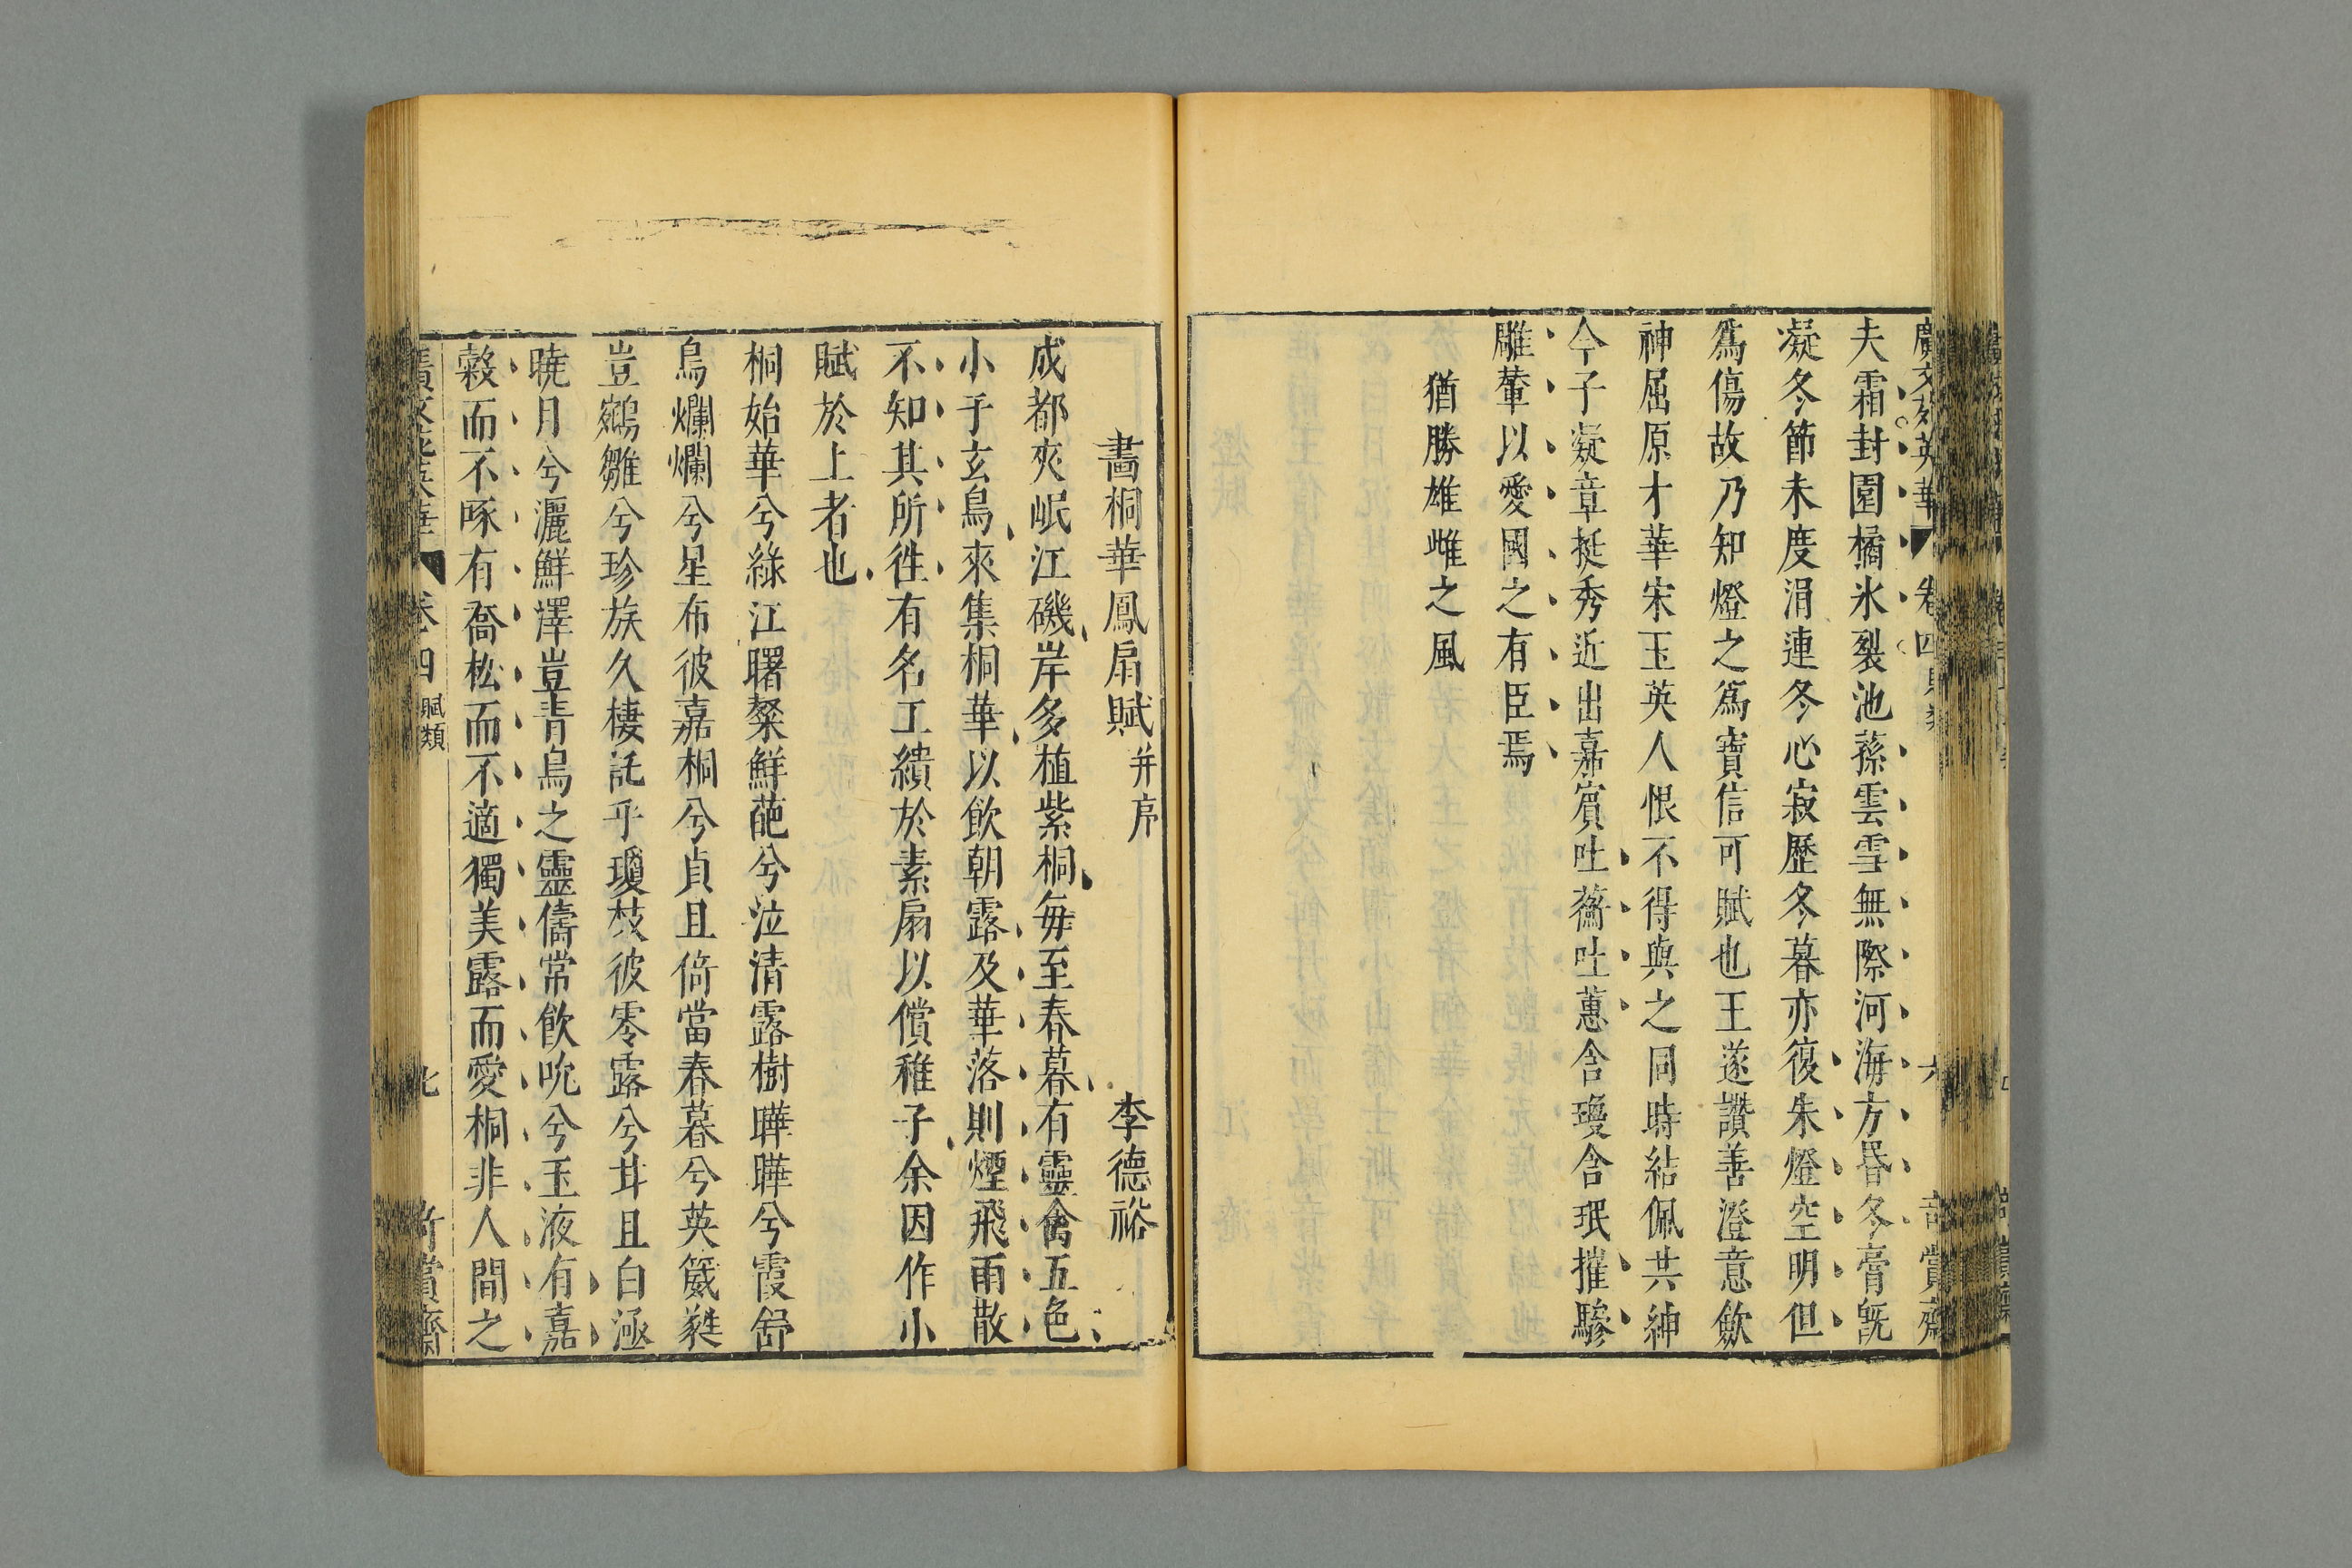 廣文苑英華 卷四 賦類 六 奇賞齋
夫霜封園橘氷裂池蓀雲雪無際河海方昏冬膏旣
凝冬節未度涓連冬心寂歷冬暮亦復朱燈空明但
爲傷故乃知燈之爲寶信可賦也王遂讚善澄意歛
神屈原才華宋玉英人恨不得與之同時結佩共紳
今子凝章挺秀近出嘉賓吐蘅吐蕙含瓊含珉摧驂
雕輦以愛國之有臣焉
猶勝雄雌之風
畵桐華鳳扇賦 幷序 李德裕
成都夾岷江磯岸多植紫桐每至春暮有靈禽五色
小于玄鳥來集桐華以飮朝露及華落則煙飛雨散
不知其所徃有名工繢於素扇以償稚子余因作小
賦於上者也
桐始華兮綠江曙粲鮮葩兮泣淸露樹曄曄兮霞舒
鳥爛爛兮星布彼嘉桐兮貞且倚當春暮兮英葳蕤
豈鵷雛兮珍族久棲託乎瓊枝彼零露兮甘且白涵
曉月兮灑鮮澤豈靑鳥之靈儔常飮吮兮玉液有嘉
穀而不啄有喬松而不適獨美露而愛桐非人間之
廣文苑英華 卷四 賦類 七 奇賞齋